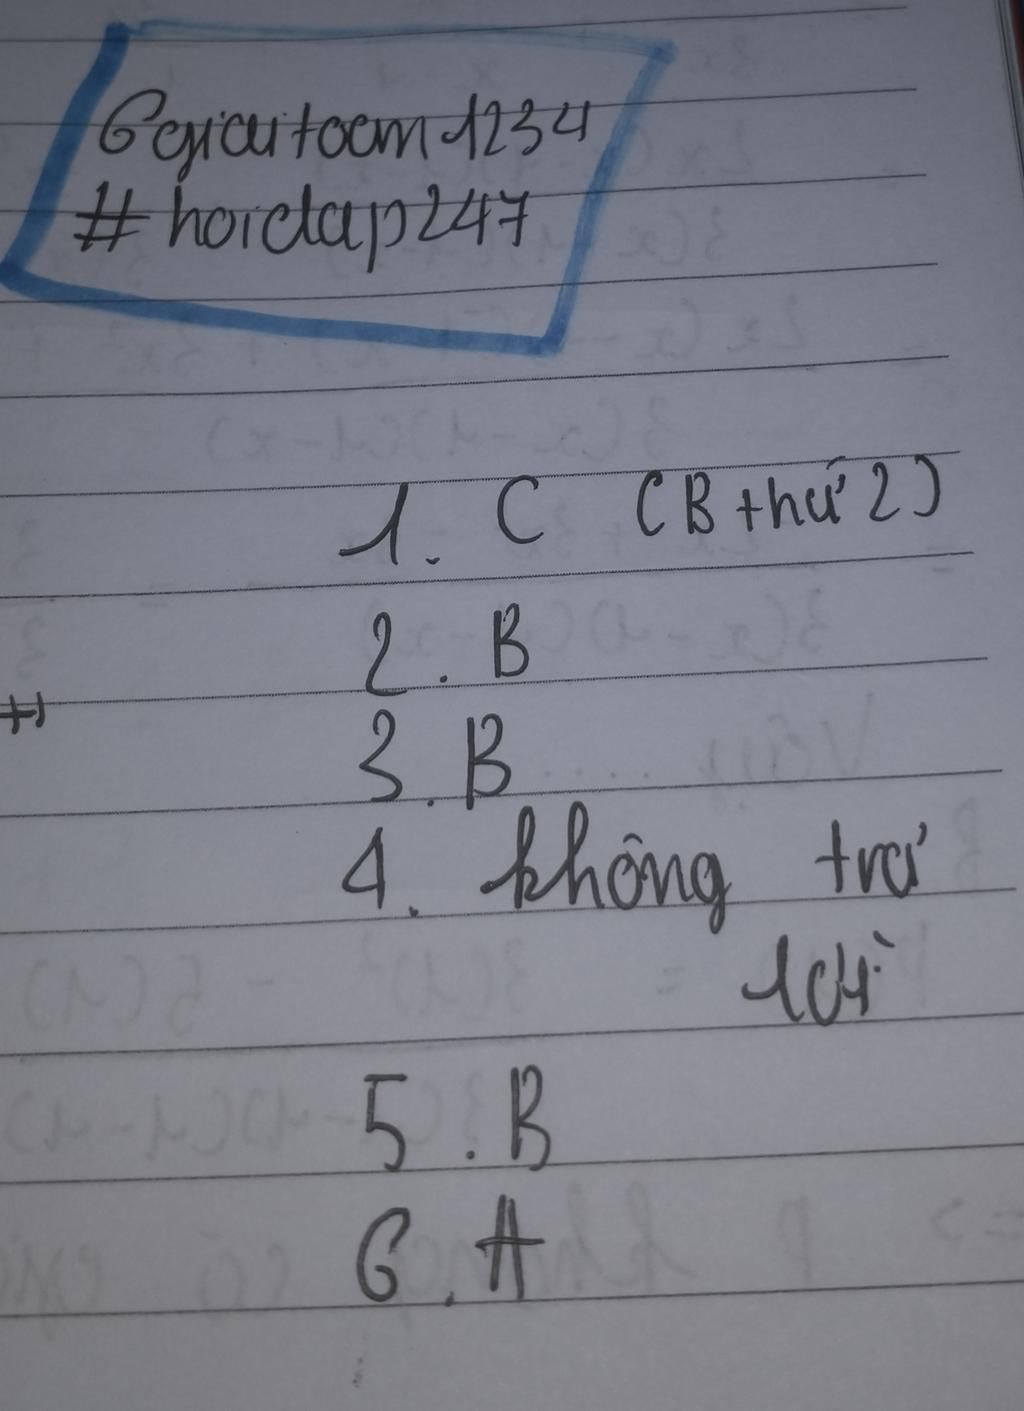 Ggiaitoan1234
#hoidap247
1. C (B thứ 2)
2. B
3. B
4. không trả
lời
5. B
6. A